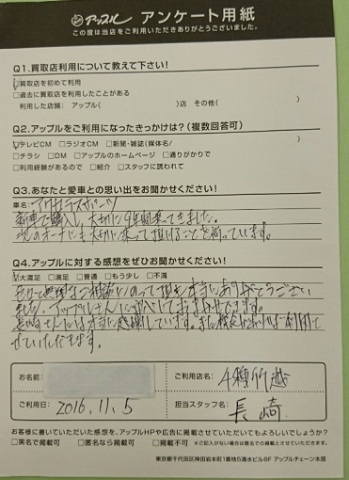 アップル アンケート用紙
この度は当店をご利用いただきありがとうございました。
Q1.買取店利用について教えて下さい!
☑買取店を初めて利用
□過去に買取店を利用したことがある
利用した店舗: アップル( )店 その他( )
Q2.アップルをご利用になったきっかけは?(複数回答可)
☑テレビCM □ラジオCM □新聞・雑誌(媒体名/ )
□チラシ □DM □アップルのホームページ □通りがかりで
□利用経験があるので □紹介 □スタッフに誘われて
Q3.あなたと愛車との思い出をお聞かせください!
車名:アクセラスポーツ
新車で購入し、大切に9年間乗ってきました。
次のオーナーにも大切に乗って頂けることを願っています。
Q4.アップルに対する感想をぜひお聞かせください!
☑大満足 □満足 □普通 □もう少し □不満
色々と無理なご相談にのって頂き本当にありがとうござい
ました。アップルさんに安心しておまかせできます。
長崎さんには本当に感謝しています。また機会があれば利用さ
せていただきます。
お名前:
ご利用店名:
4種所越
ご利用日: 2016.11.5
担当スタッフ名: 長崎
お客様に書いていただいた感想を、アップルHPや広告に掲載させていただいてもよろしいでしょうか?
□実名で掲載可 □匿名なら掲載可 □掲載不可 ※ご記入がない場合は匿名での掲載とさせていただきます。
東京都千代田区神田岩本町1番地5清水ビル8F アップルチェーン本部